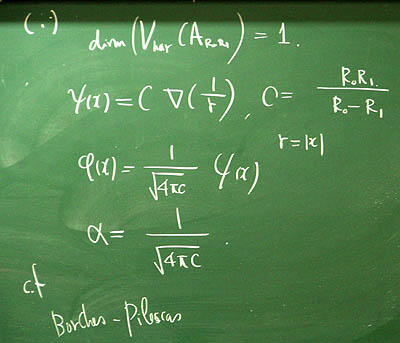 (∵) dim(V_har(A_{R_0 R_1})) = 1.
ψ(x) = C ∇(1/r), C = R_0 R_1 / (R_0 - R_1)
r = |x|
φ(x) = 1/√(4πC) ψ(x)
α = 1/√(4πC).
c.f
Borchers - Pileckas